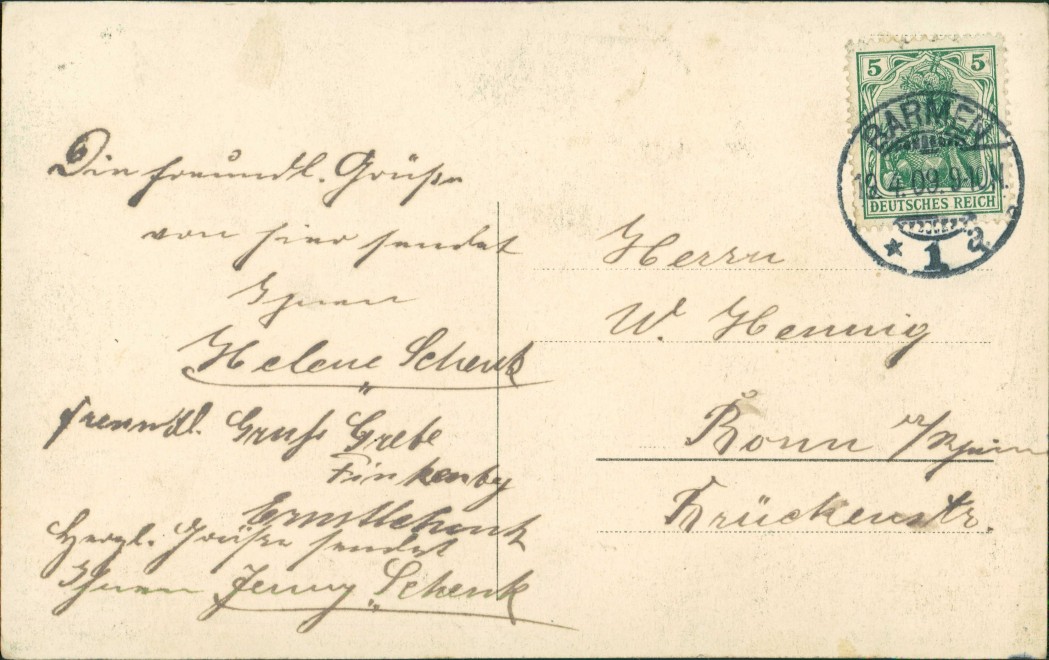 Die freundl. Grüße
von hier sendet
Ihnen
Helene Schenk
freundl. Gruß Grete
Ernst Schenk
Herzl. Grüße sendet
Ihnen Jenny Schenk
5 5
DEUTSCHES REICH
BARMEN
12.4.09.9-10N.
* 1 a
Herrn
W. Hennig
Bonn a/Rhein
Brückenstr.